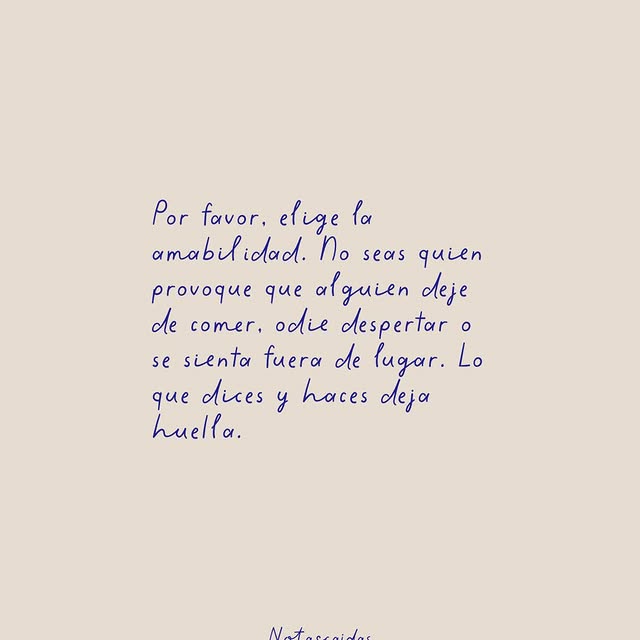 Por favor, elige la
amabilidad. No seas quien
provoque que alguien deje
de comer, odie despertar o
se sienta fuera de lugar. Lo
que dices y haces deja
huella.
Notascaidas